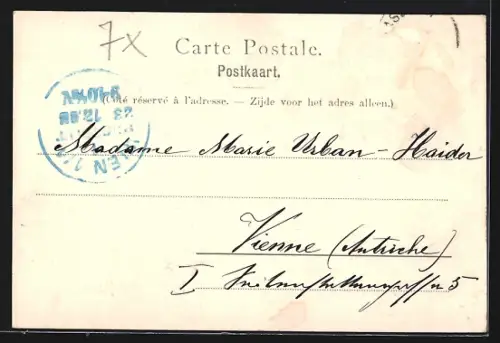 7x
Carte Postale.
Postkaart.
(Côté réservé à l'adresse. — Zijde voor het adres alleen.)
Madame Marie Urban-Haider
Vienne (Autriche)
I 5
WIEN 1